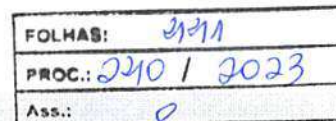 FOLHAS:
PROC.: 240 / 2023
Ass.: